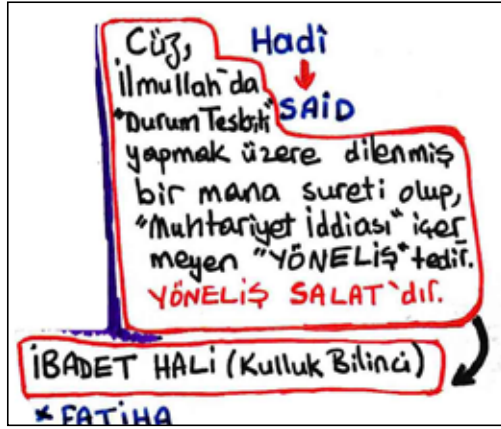 Cüz, Hadi
İlmullah'da
"Durum Tesbiti" SAİD
yapmak üzere dilenmiş
bir mana sureti olup,
"Muhtariyet İddiası" içer
meyen "YÖNELİŞ" tedir.
YÖNELİŞ SALAT'dır.
İBADET HALİ (Kulluk Bilinci)
* FATİHA